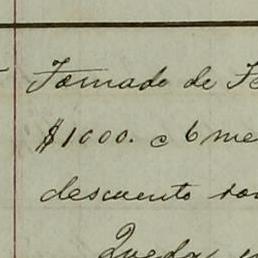 Tomado de
$1000. c 6 me
descuento
Queda